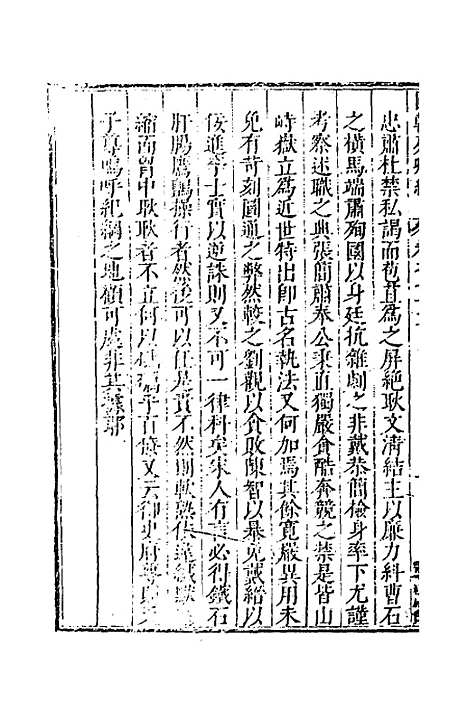 忠肅杜禁私謁而苞苴爲之屏絶耿文清結主以廉力糾曹石
之橫馬端肅殉國以身廷抗雜劇之非戴恭簡檢身率下尤謹
考察述職之典張簡肅奉公秉直獨嚴貪酷奔競之禁是皆山
峙嶽立爲近世特出即古名執法又何加焉其餘寛嚴異用未
免有苛刻圓通之弊然較之劉觀以貪敗陳智以暴免戴綸以
佞進寧士實以逆誅則又不可一律科矣宋人有言必得鐵石
肝腸鷹鸇操行者然後可以任是責不然則軟熟佚
縮而胷中耿耿者不立何以 乎百僚又云御史府尊與天
子尊嗚呼紀綱之地顧可處非其據耶